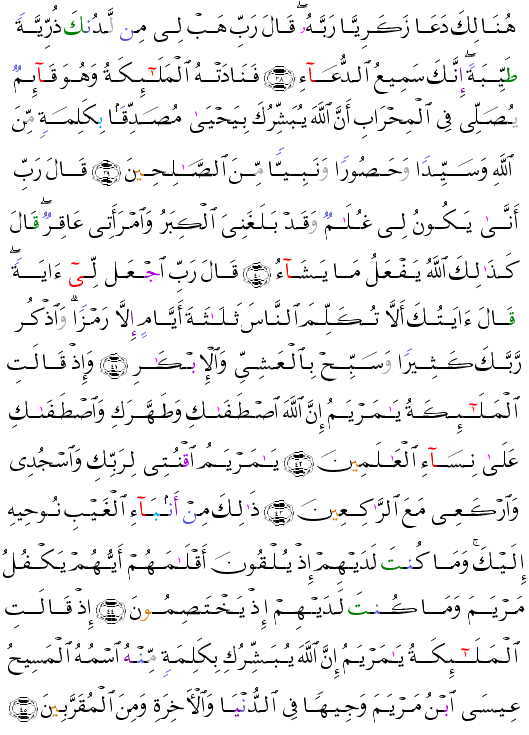 هُنَالِكَ دَعَا زَكَرِيَّا رَبَّهُۥ ۖ قَالَ رَبِّ هَبْ لِى مِن لَّدُنكَ ذُرِّيَّةً
طَيِّبَةً ۖ إِنَّكَ سَمِيعُ الدُّعَآءِ ﴿٣٨﴾ فَنَادَتْهُ الْمَلَٰٓئِكَةُ وَهُوَ قَآئِمٌ
يُصَلِّى فِى الْمِحْرَابِ أَنَّ اللَّهَ يُبَشِّرُكَ بِيَحْيَىٰ مُصَدِّقًۢا بِكَلِمَةٍ مِّنَ
اللَّهِ وَسَيِّدًا وَحَصُورًا وَنَبِيًّا مِّنَ الصَّٰلِحِينَ ﴿٣٩﴾ قَالَ رَبِّ
أَنَّىٰ يَكُونُ لِى غُلَٰمٌ وَقَدْ بَلَغَنِىَ الْكِبَرُ وَامْرَأَتِى عَاقِرٌ ۖ قَالَ
كَذَٰلِكَ اللَّهُ يَفْعَلُ مَا يَشَآءُ ﴿٤٠﴾ قَالَ رَبِّ اجْعَل لِّىٓ ءَايَةً ۖ
قَالَ ءَايَتُكَ أَلَّا تُكَلِّمَ النَّاسَ ثَلَٰثَةَ أَيَّامٍ إِلَّا رَمْزًا ۗ وَاذْكُر
رَّبَّكَ كَثِيرًا وَسَبِّحْ بِالْعَشِىِّ وَالْإِبْكَٰرِ ﴿٤١﴾ وَإِذْ قَالَتِ
الْمَلَٰٓئِكَةُ يَٰمَرْيَمُ إِنَّ اللَّهَ اصْطَفَىٰكِ وَطَهَّرَكِ وَاصْطَفَىٰكِ
عَلَىٰ نِسَآءِ الْعَٰلَمِينَ ﴿٤٢﴾ يَٰمَرْيَمُ اقْنُتِى لِرَبِّكِ وَاسْجُدِى
وَارْكَعِى مَعَ الرَّٰكِعِينَ ﴿٤٣﴾ ذَٰلِكَ مِنْ أَنۢبَآءِ الْغَيْبِ نُوحِيهِ
إِلَيْكَ ۚ وَمَا كُنتَ لَدَيْهِمْ إِذْ يُلْقُونَ أَقْلَٰمَهُمْ أَيُّهُمْ يَكْفُلُ
مَرْيَمَ وَمَا كُنتَ لَدَيْهِمْ إِذْ يَخْتَصِمُونَ ﴿٤٤﴾ إِذْ قَالَتِ
الْمَلَٰٓئِكَةُ يَٰمَرْيَمُ إِنَّ اللَّهَ يُبَشِّرُكِ بِكَلِمَةٍ مِّنْهُ اسْمُهُ الْمَسِيحُ
عِيسَى ابْنُ مَرْيَمَ وَجِيهًا فِى الدُّنْيَا وَالْأَخِرَةِ وَمِنَ الْمُقَرَّبِينَ ﴿٤٥﴾